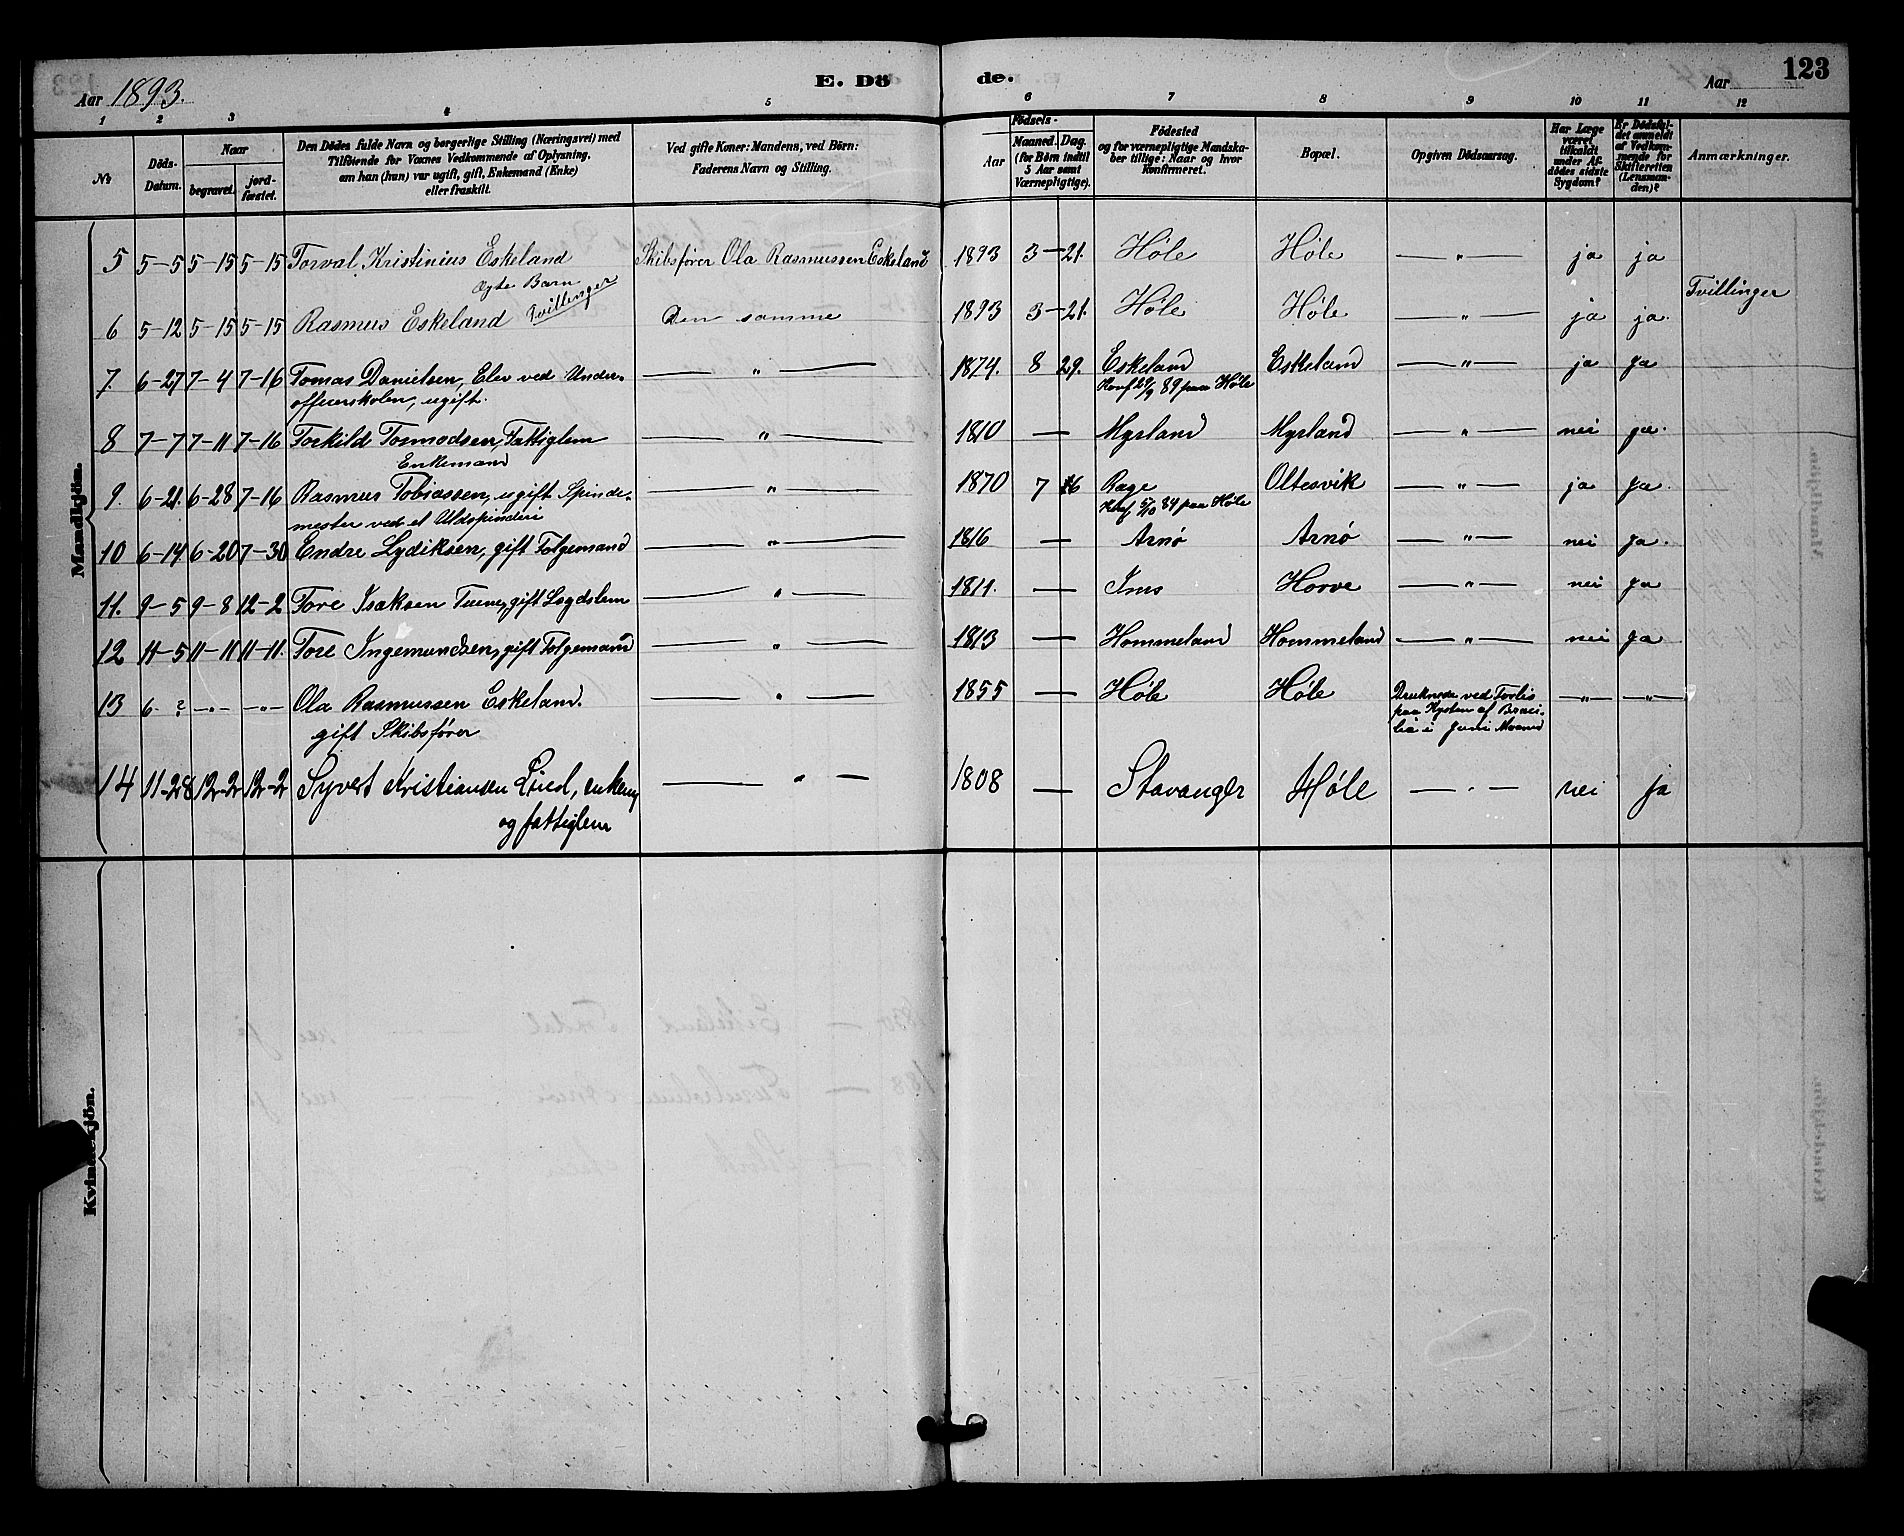 Aar 1893. E. Dö de. Aar 123
1 2 3 4 5 6 7 8 9 10 11 12
№ Döds-Datum. Naar begravet. jord-fæstet. Den Dödes fulde Navn og borgerlige Stilling (Næringsvei) med Tilföiende for Voxnes Vedkommende af Oplysning, om han (hun) var ugift, gift, Enkemand (Enke) eller fraskilt. Ved gifte Koner: Mandens, ved Börn: Faderens Navn og Stilling. Födsels- Aar Maaned. Dag. (for Börn indtil 5 Aar samt Værnepligtige). Födested og for værnepligtige Mandska-ber tillige: Naar og hvor konfirmeret. Bopæl. Opgiven Dödsaarsag. Har Læge været tilkaldt under Af-dödes sidste Sygdom? Er Dödsfal-det anmeldt af Vedkom-mende for Skifteretten (Lensman-den)? Anmærkninger.
Mandkjön.
5 5–5 5–15 5–15 Torval Kristinius Eskeland Skibsfører Ola Rasmussen Eskeland 1893 3–21. Høle Høle — " — ja ja
Ægte Barn
Tvillinger Tvillinger
6 5–12 5–15 5–15 Rasmus Eskeland Den samme 1893 3–21. Høle Høle — " — ja ja.
7. 6–27 7–4 7–16 Tomas Danielsen, Elev ved Under- — " — 1874. 8 29. Eskeland Eskeland — " — ja ja
officerskolen, ugift. Konf 29/9 89 paa Høle
8 7–7 7–11 7–16 Torkild Tormodsen, Fattiglem — " — 1810 — Myrland Myrland — " — nei ja.
Enkemand
9. 6–21. 6–28 7–16 Rasmus Tobiassen, ugift Spinde- — " — 1870 7 16 Rage Oltesvik — " — ja ja.
mester ved et Uldspinderi Konf 5/10 84 paa Høle
10 6–14 6–20 7–30 Endre Lydiksen, gift Folgemand — " — 1816 — Arnø Arnø — " — nei ja.
11. 9–5 9–8 12–2 Tore Isaksen gift Lægdslem — " — 1811. — Ims Horve — " — nei ja
12 11–5 11–11 11–11. Tore Ingemundsen, gift Folgemand — " — 1813 — Hommeland Hommeland — " — nei ja
13 6–? –"– –"– Ola Rasmussen Eskeland. — " — 1855 — Høle Høle Druknede ved
gift Skibsfører paa Kysten af Brasi-
lia i Juni Maaned –"– –"–
14 11–28 12–2 12–2 Syvert Kristiansen Lind, enkem, — " — 1808 — Stavanger Høle — " — nei ja
og fattiglem
Kvindekjön.